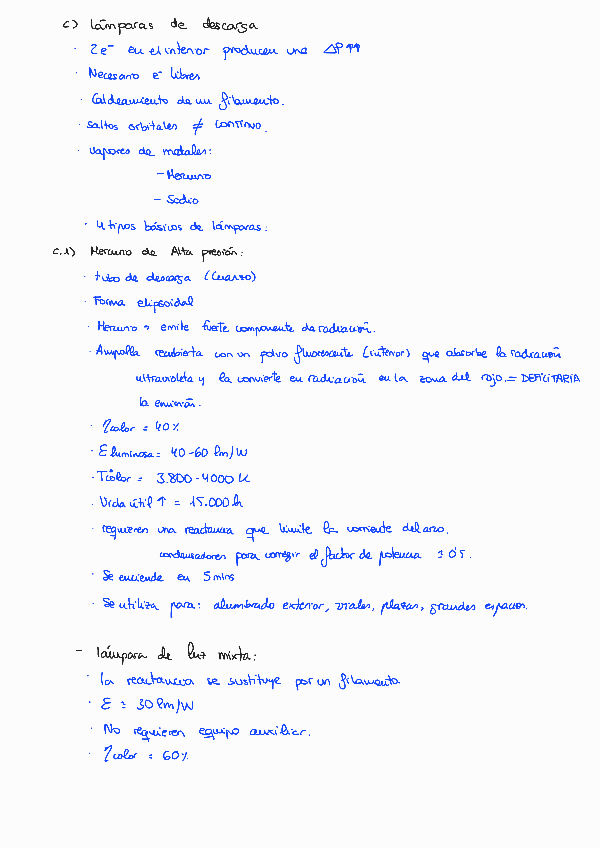 c) Lámparas de descarga
· 2 e⁻ en el interior producen una ΔP ↑↑
· Necesario e⁻ libres
· Caldeamiento de un filamento.
· Saltos orbitales ≠ continuo.
· Vapores de metales:
– Mercurio
– Sodio
· 4 tipos básicos de lámparas:
c.1) Mercurio de Alta presión:
· tubo de descarga (cuarzo)
· Forma elipsoidal
· Mercurio → emite fuerte componente de radiación.
· Ampolla recubierta con un polvo fluorescente (interior) que absorbe la radiación
ultravioleta y la convierte en radiación en la zona del rojo. = DEFICITARIA
la emisión.
· ηcolor = 40%
· Eluminosa = 40-60 lm/W
· Tcolor = 3.800-4000 K
· Vida útil ↑ = 15.000 h
· requieren una reactancia que limite la corriente del arco.
condensadores para corregir el factor de potencia = 0'5.
· Se enciende en 5 mins
· Se utiliza para: alumbrado exterior, viales, plazas, grandes espacios.
– lámpara de luz mixta:
· la reactancia se sustituye por un filamento
· E = 30 lm/W
· No requieren equipo auxiliar.
· ηcolor = 60%